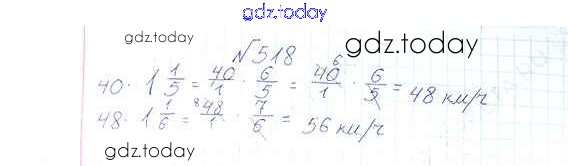 gdz.today
gdz.today
№518
gdz.today
40 · 1 1/5 = 40/1 · 6/5 = 40/1 · 6/5 = 48 км/ч
48 · 1 1/6 = 48/1 · 7/6 = 56 км/ч
gdz.today